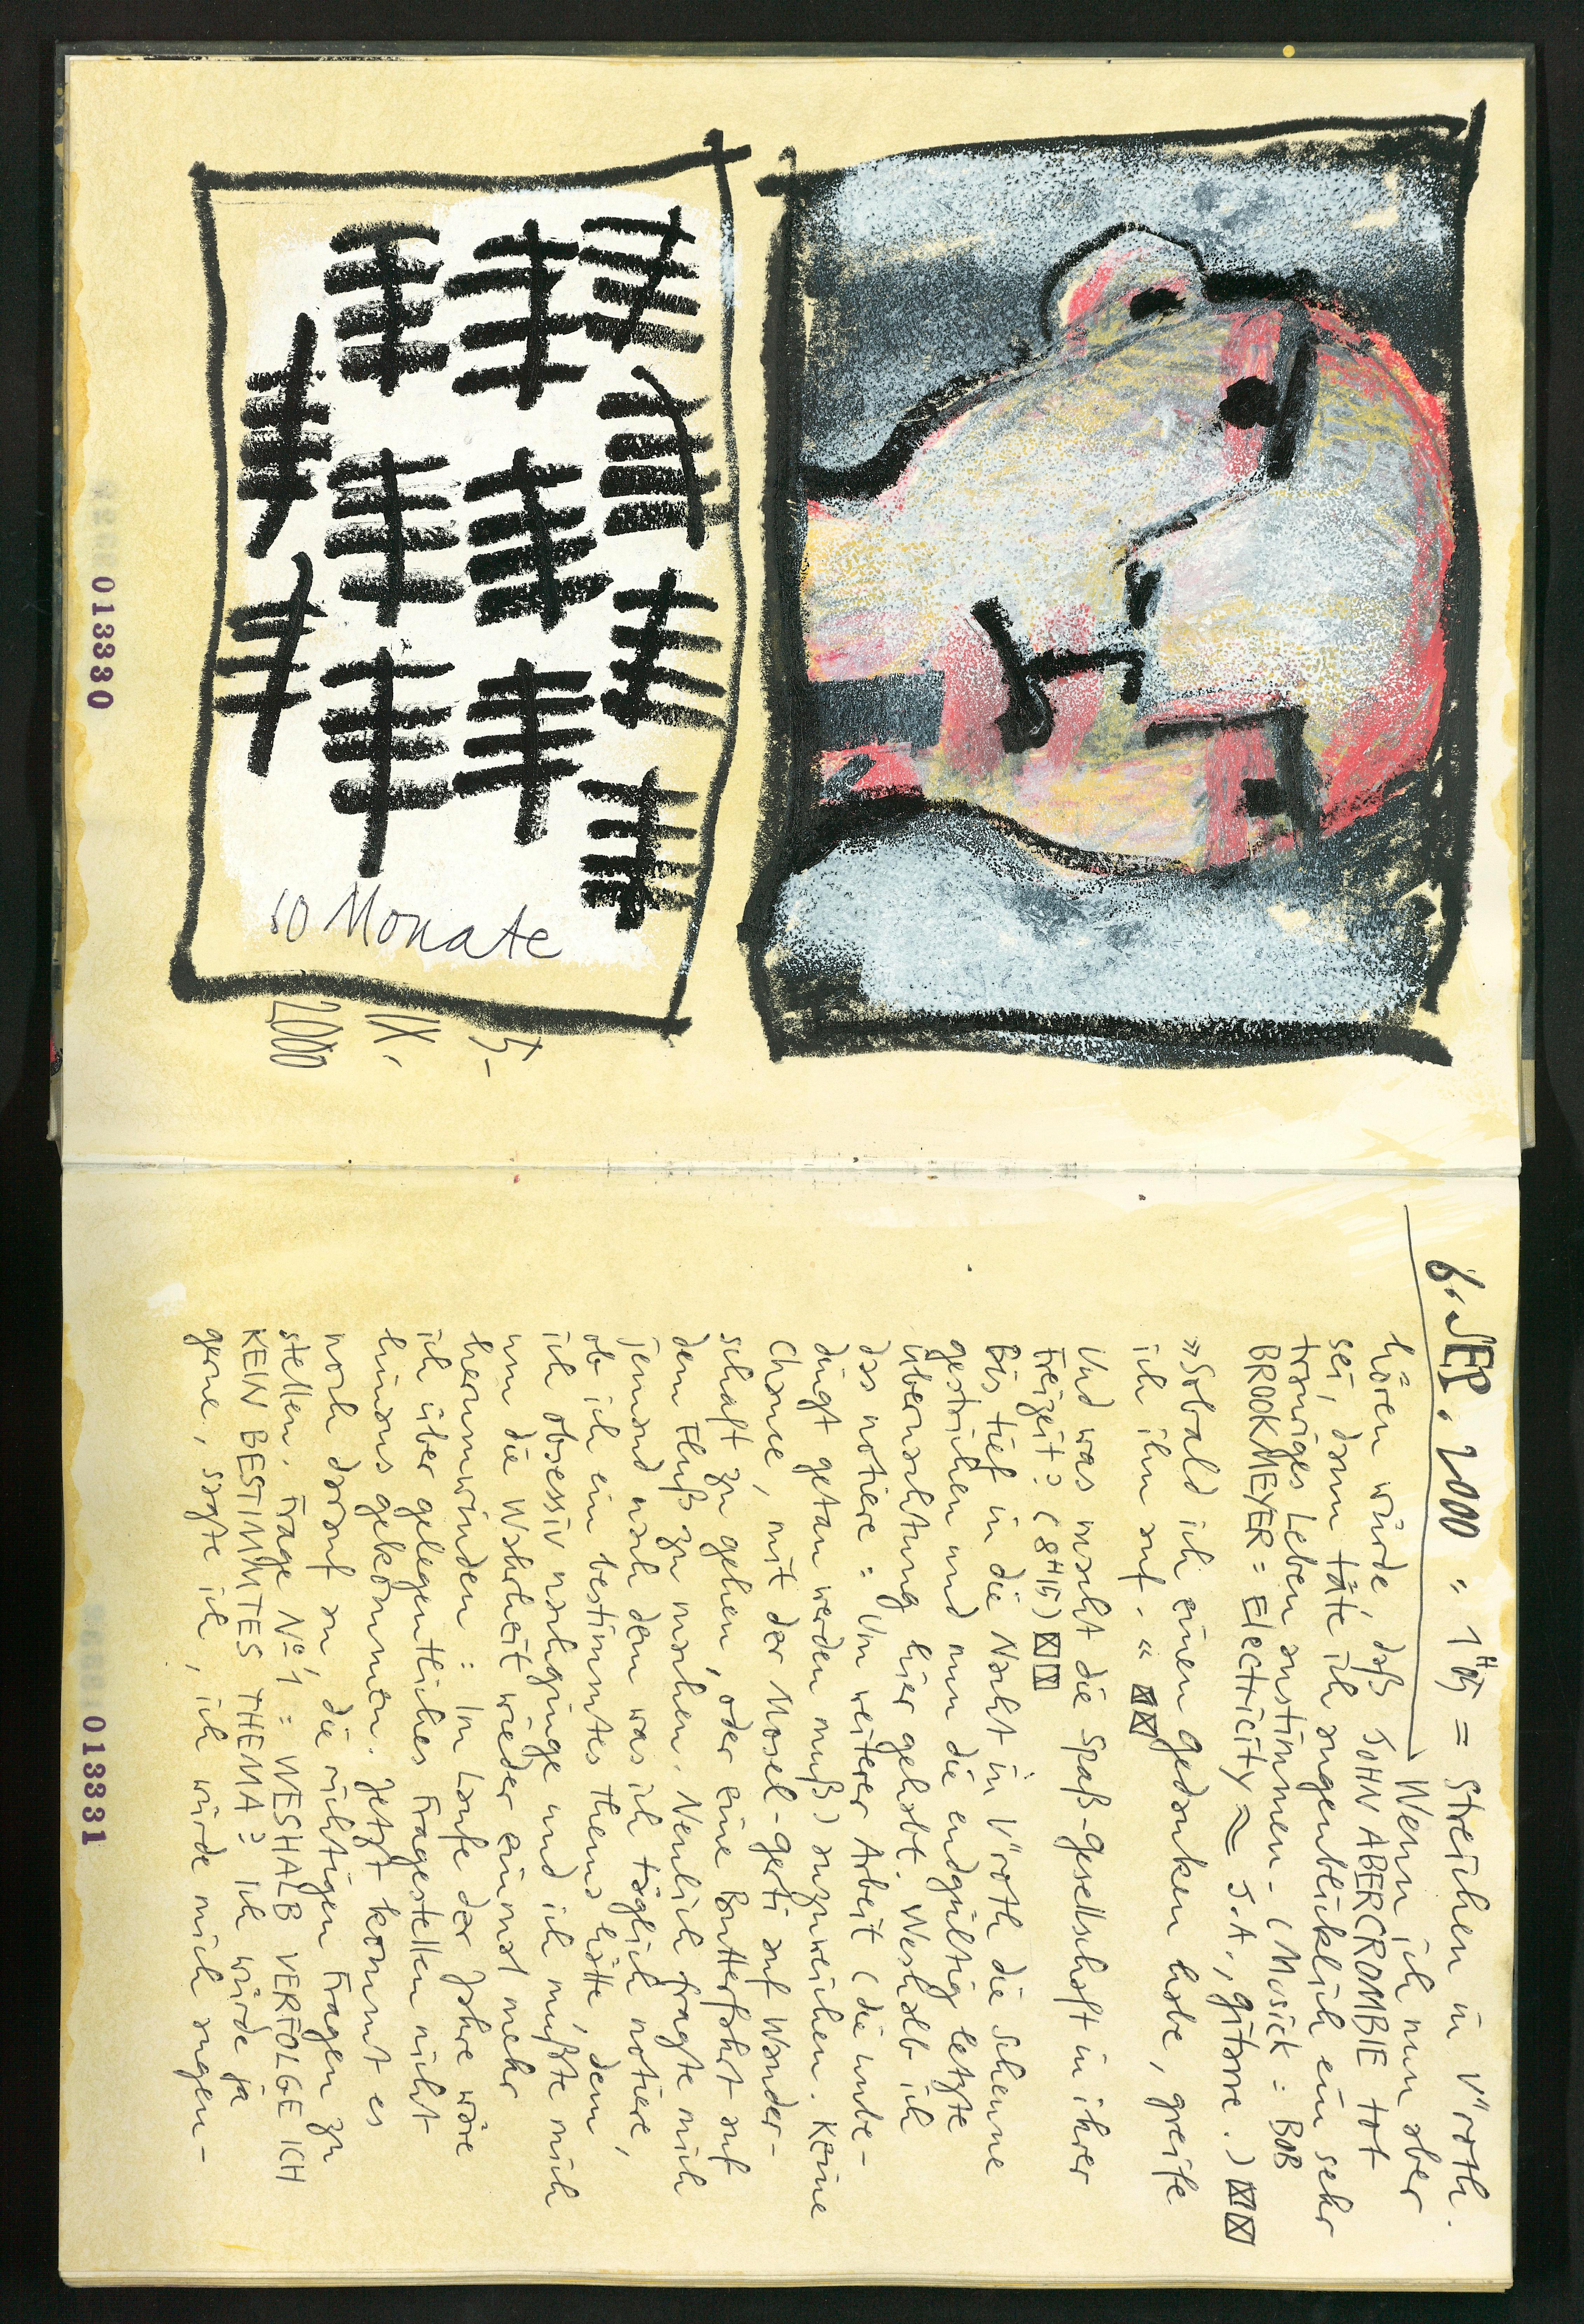 10 Monate
5.
IX.
2000
013330
6. SEP. 2000, 1 H 15 = Streichen in V"roth.
Wenn ich nun aber
hören würde, daß JOHN ABERCROMBIE tot
sei, dann täte ich augenblicklich ein sehr
trauriges Leben anstimmen. (Musick: BOB
BROOKMEYER = Electricity ≈ J.A., gitarre.) ☒☒
»Sobald ich einen gedanken habe, greife
ich ihn auf.« ☒☒
Und was macht die Spaß-gesellschaft in ihrer
Freizeit? (8H15) ☒☒
Bis tief in die Nacht in V"roth die Scheune
gestrichen und nun die endgültig letzte
übernachtung hier gehabt. Weshalb ich
das notiere: Um weiterer Arbeit (die unbe-
dingt getan werden muß) auszuweichen. Keine
Chance, mit der Mosel-gerti auf Wander-
schaft zu gehen, oder eine Butterfahrt auf
dem Fluß zu machen. Neulich fragte mich
jemand nach dem was ich täglich notiere,
ob ich ein bestimmtes Thema hätte, dem
ich obsessiv nachginge und ich mußte mich
um die Wahrheit wieder einmal mehr
herumwinden: Im Laufe der Jahre wäre
ich über gelegentliches Fragestellen nicht
hinaus gekommen. Jetzt kommt es
noch darauf an, die richtigen Fragen zu
stellen. Frage Nº 1: WESHALB VERFOLGE ICH
KEIN BESTIMMTES THEMA? Ich würde ja
gerne, sagte ich, ich würde mich ungen-
013331